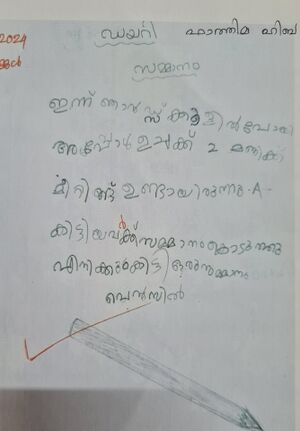 2024
ഡയറി ഫാത്തിമ ഹിബ
സമ്മാനം
ഇന്ന് ഞാൻ സ്ക്കൂളിൽ പോയി
അപ്പോൾ ഉച്ചക്ക് 2 മണിക്ക്
മീറ്റിങ്ങ് ഉണ്ടായിരുന്നു. A-
കിട്ടിയവർക്ക് സമ്മാനം കൊടുത്തു
എനിക്കും കിട്ടി ഒരു സമ്മാനം
പെൻസിൽ